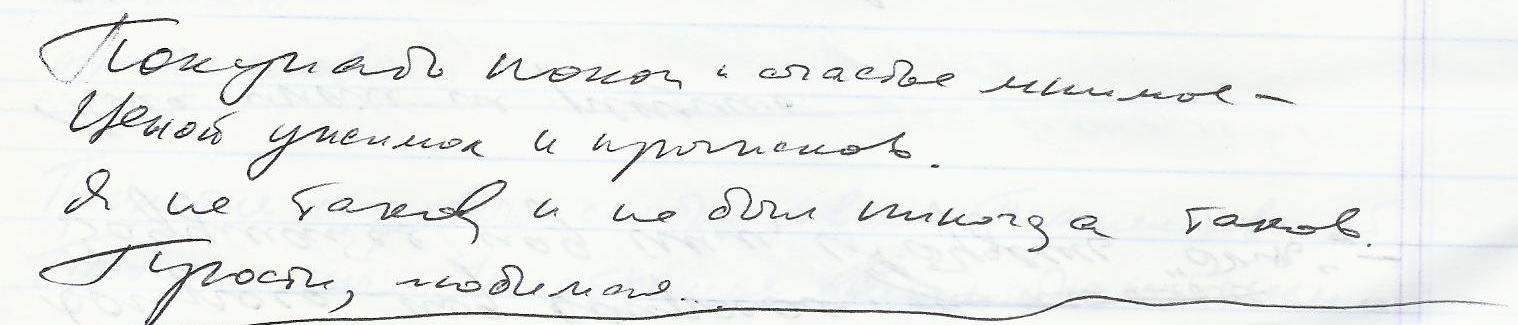 Покупать покой и счастье мнимое –
Ценой ужимок и прыжков.
Я не таков и не был никогда таков.
Прости, любимая...